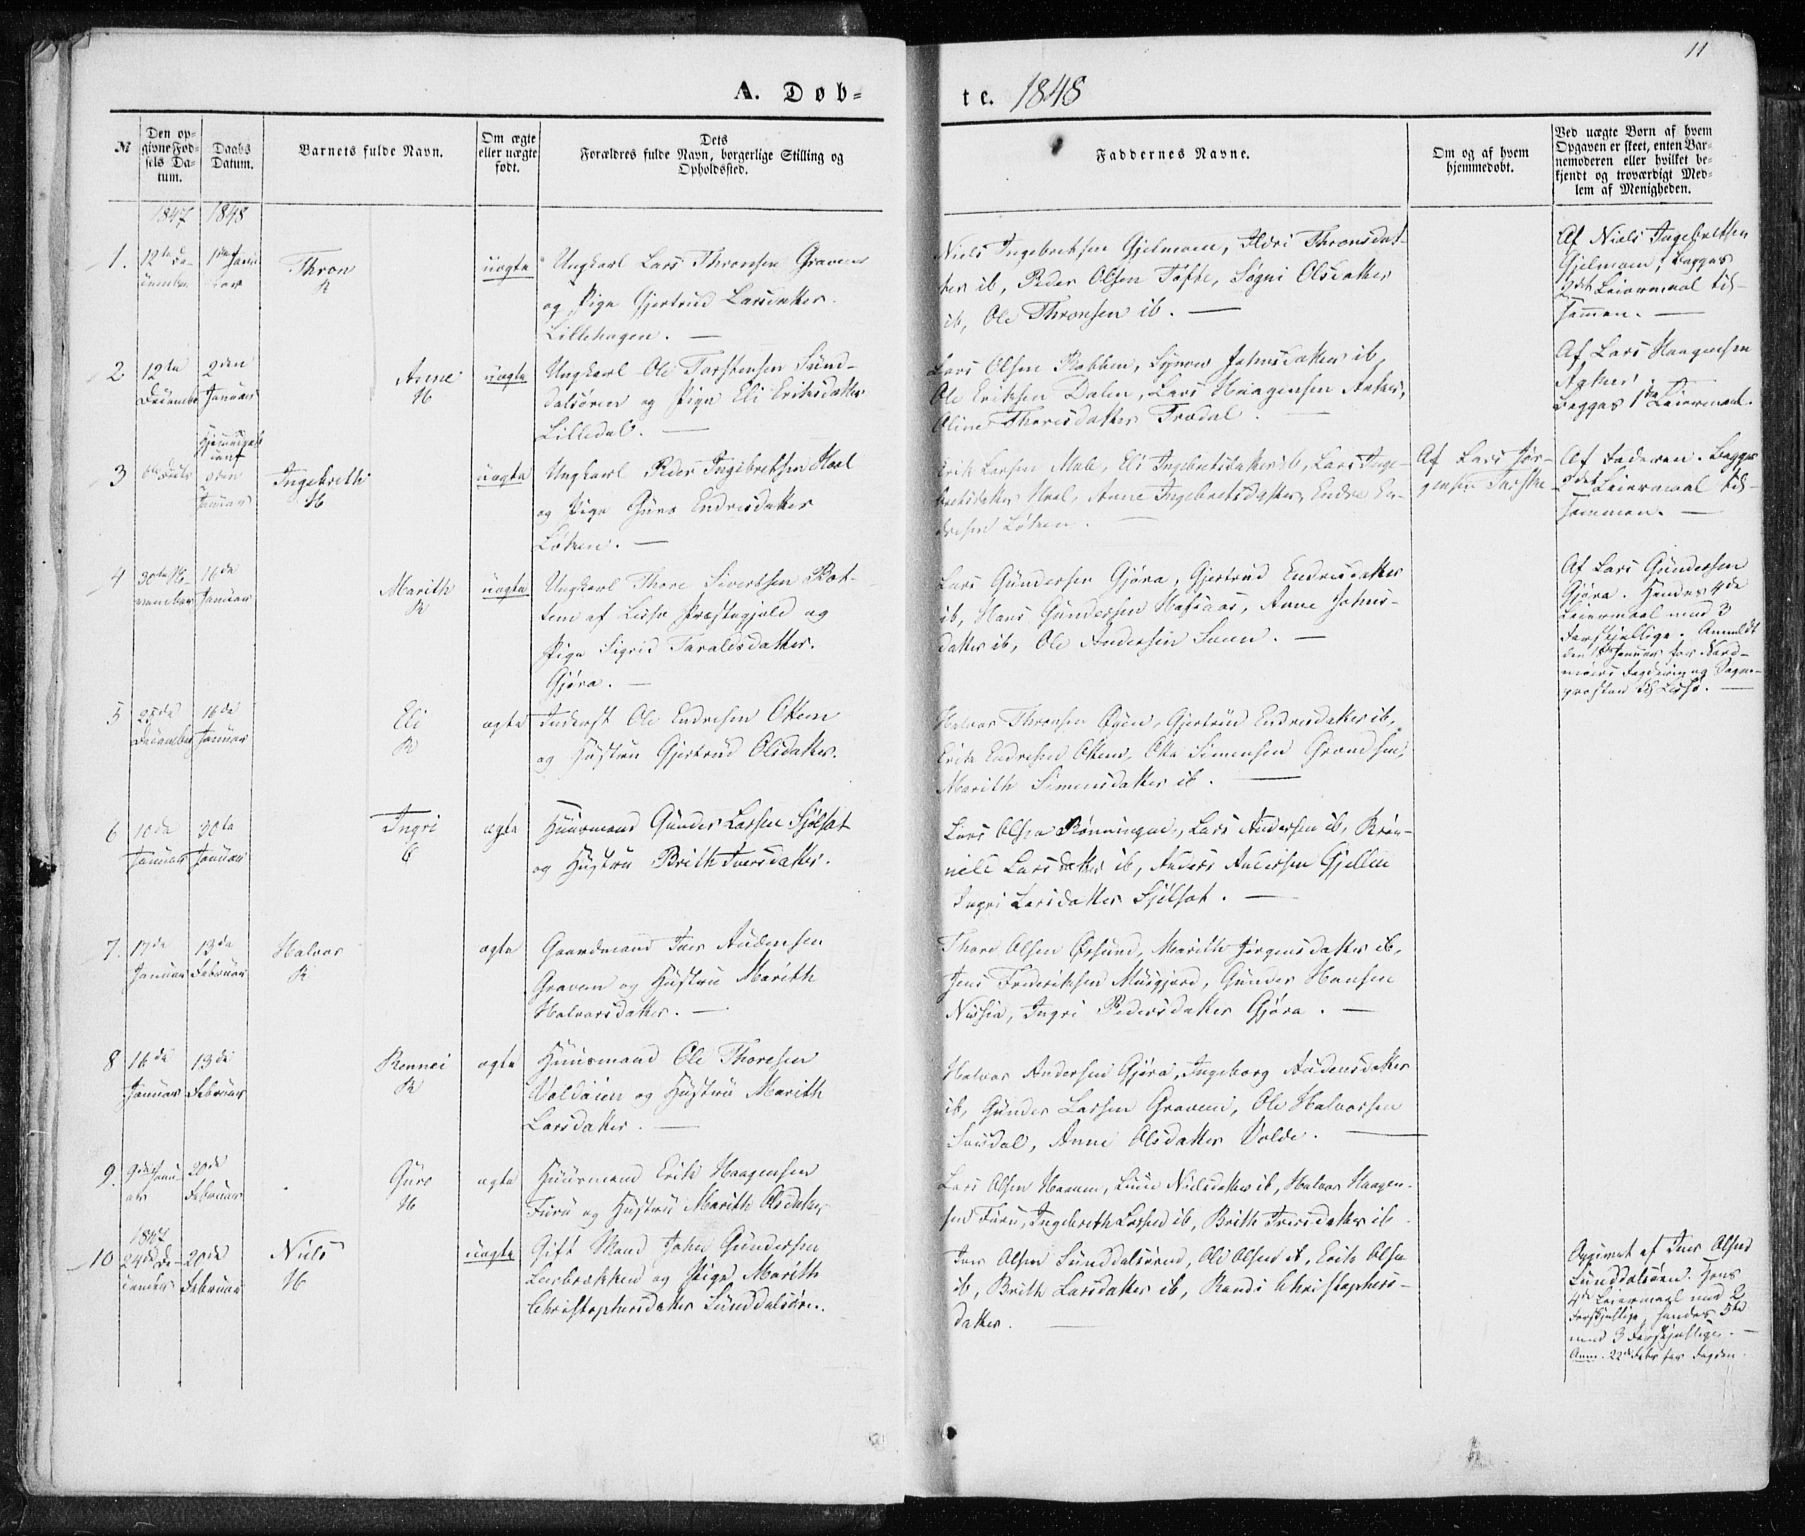 11
A. Døb=
te. 1848
№
Den op-
givne Fød-
sels Da-
tum.
Daabs
Datum.
Barnets fulde Navn.
Om ægte
eller uægte
født.
Dets
Forældres fulde Navn, borgerlige Stilling og
Opholdssted.
Faddernes Navne.
Om og af hvem
hjemmedøbt.
Ved uægte Børn af hvem
Opgaven er skeet, enten Bar-
nemoderen eller hvilket be-
kjendt og troværdigt Med-
lem af Menigheden.
1847
1848
1.
12te De-
cember
1ste Janu-
ar
Thron
R
uægte
Ungkarl Lars Thronsen Graven
og Pige Gjertrud Larsdatter
Lillehagen. —
Niels Ingebretsen Gjelmom, Ildri Thronsdat-
ter ib, Peder Olsen Tofte, Sigri Olsdatter
ib, Ole Thronsen ib. —
Af Niels Ingebretsen
Gjelmom; Begges
2det Leiermaal til-
sammen. —
2
12te
December
2den
Januar
Arene
H
uægte
Ungkarl Ole Torstensen Sund-
dalsøren og Pige Eli Eriksdatter
Lilledal. —
Lars Olsen Flobben, Synnev Johnsdatter ib,
Ole Eriksen Dalen, Lars Haagensen
Oline Thorisdatter Trædal.
Af Lars Haagensen
Begges 1ste Leiermaal.
3
6te
Januar
Ingebreth
H
uægte
Ungkarl Peder Ingebretsen Hoel
og Pige Guro Endresdatter
Løken. —
Erik Larsen Mæle, Eli Ingebretsdatter ib, Lars Inge-
bretsdatter Hoel, Anne Ingebretsdatter, Endre En-
dresen Løken. —
Af Lars Jør-
gensen
Af Faderen. Begges
Leiermaal til-
sammen. —
4
30te No-
vember
16de
Januar
Marith
R
uægte
Ungkarl Thore Sivertsen Bot-
tem af Lesje Præstegjeld og
Pige Sigrid Taraldsdatter.
Gjøra. —
Lars Gundersen Gjøra, Gjertrud Endresdatter
ib, Hans Gundersen Hafsaas, Anne Johns-
datter ib, Ole Andersen Snøen. —
Af Lars Gundersen
Gjøra. Hendes 4de
Leiermaal med 3
forskjellige. Anmeldt
den Januar for Nord-
møers Fogderi og Sogne-
præsten til Lesje. —
5
25de
December
16de
Januar
Eli
R
ægte
Inderst Ole Endresen Ottem
og Hustru Gjertrud Olsdatter.
Halvor Thronsen Øyen, Gjertrud Endresdatter ib,
Erik Endresen Ottem, Otte Simensen Grøndsen,
Marith Simensdatter ib. —
6
10de
Januar
30te
Januar
Ingri
ægte
Huusmand Gunder Larsen Sjølset
og Hustru Brith Iversdatter.
Lars Olsen Rønningen, Lars Andersen ib, Krøn-
nile Larsdatter ib, Anders Andersen Gjellen
Ingri Larsdatter Sjølset. —
7.
17de
Januar
13de
Februar
Halvor
R
ægte
Gaardmand Iver Audensen
Graven og Hustru Marith
Halvorsdatter. —
Thore Olsen Øxsund, Marith Jørgensdatter ib,
Jens Frederiksen Musgjerd, Gunder Hansen
Nisja, Ingri Pedersdatter Gjøra. —
8
16de
Januar
13de
Februar
Rønnei
R
ægte
Huusmand Ole Thoresen
Voldøien og Hustru Marith
Larsdatter. —
Halvor Andersen Gjøra, Ingeborg Audensdatter
ib, Gunder Larsen Graven, Ole Halvorsen
Snødal, Anne Olsdatter Volde. —
9.
9de Janu-
ar
20de
Februar
Guro
H
ægte
Huusmand Erik Haagensen
Furu og Hustru Marith Olsdatter
Lars Olsen Haaven, Lucie Nielsdatter ib, Halvor Haagen-
sen Furu, Ingebreth Larsen ib, Brith Iversdatter ib
10
1847
24de De-
cember
20de
Februar
Niels
H
uægte
Gift Mand John Gundersen
Leirbrækken og Pige Marith
Christophersdatter Sunddalsøren.
Iver Olsen Sunddalsøren, Ole Olsen ib, Erik Olsen
ib, Brith Larsdatter ib, Randi Christophers-
datter. —
Opgivet af Iver Olsen
Sunddalsøren. Hans
4de Leiermaal med 2
forskjellige, hendes 5te
med 3 forskjellige. —
Anm. 22de Febr for Fogden.